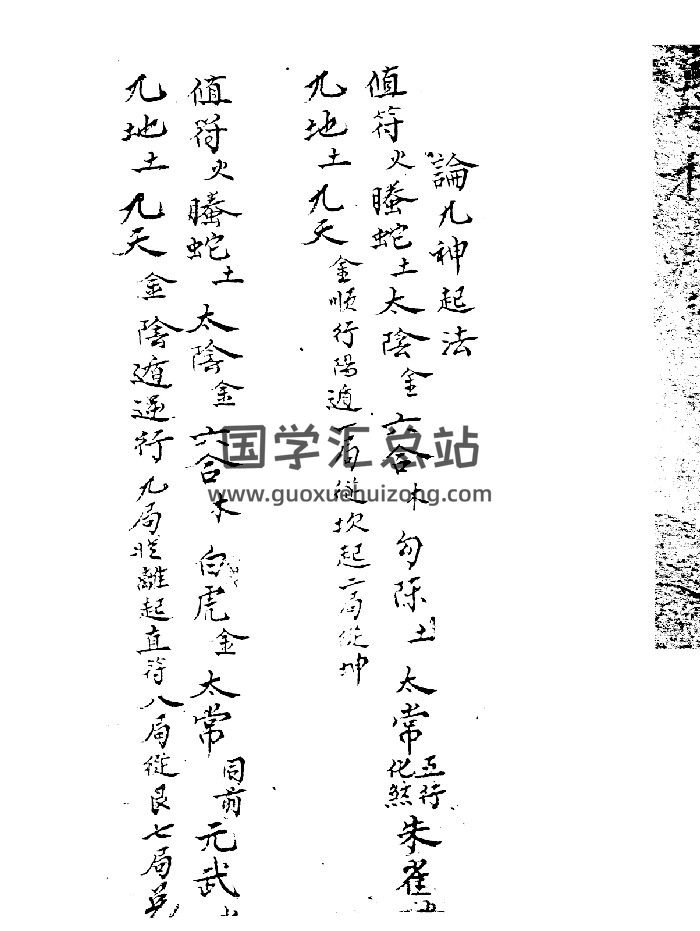 論九神起法
值符火螣蛇土太陰金六合木勾陈土太常五行化煞朱雀
九地土九天金顺行陽遁一局從坎起二局從坤
值符火螣蛇土太陰金六合木白虎金太常同前元武
九地土九天金陰遁逆行九局從離起直符八局從艮七局兑
国学汇总站
www.guoxuehuizong.com